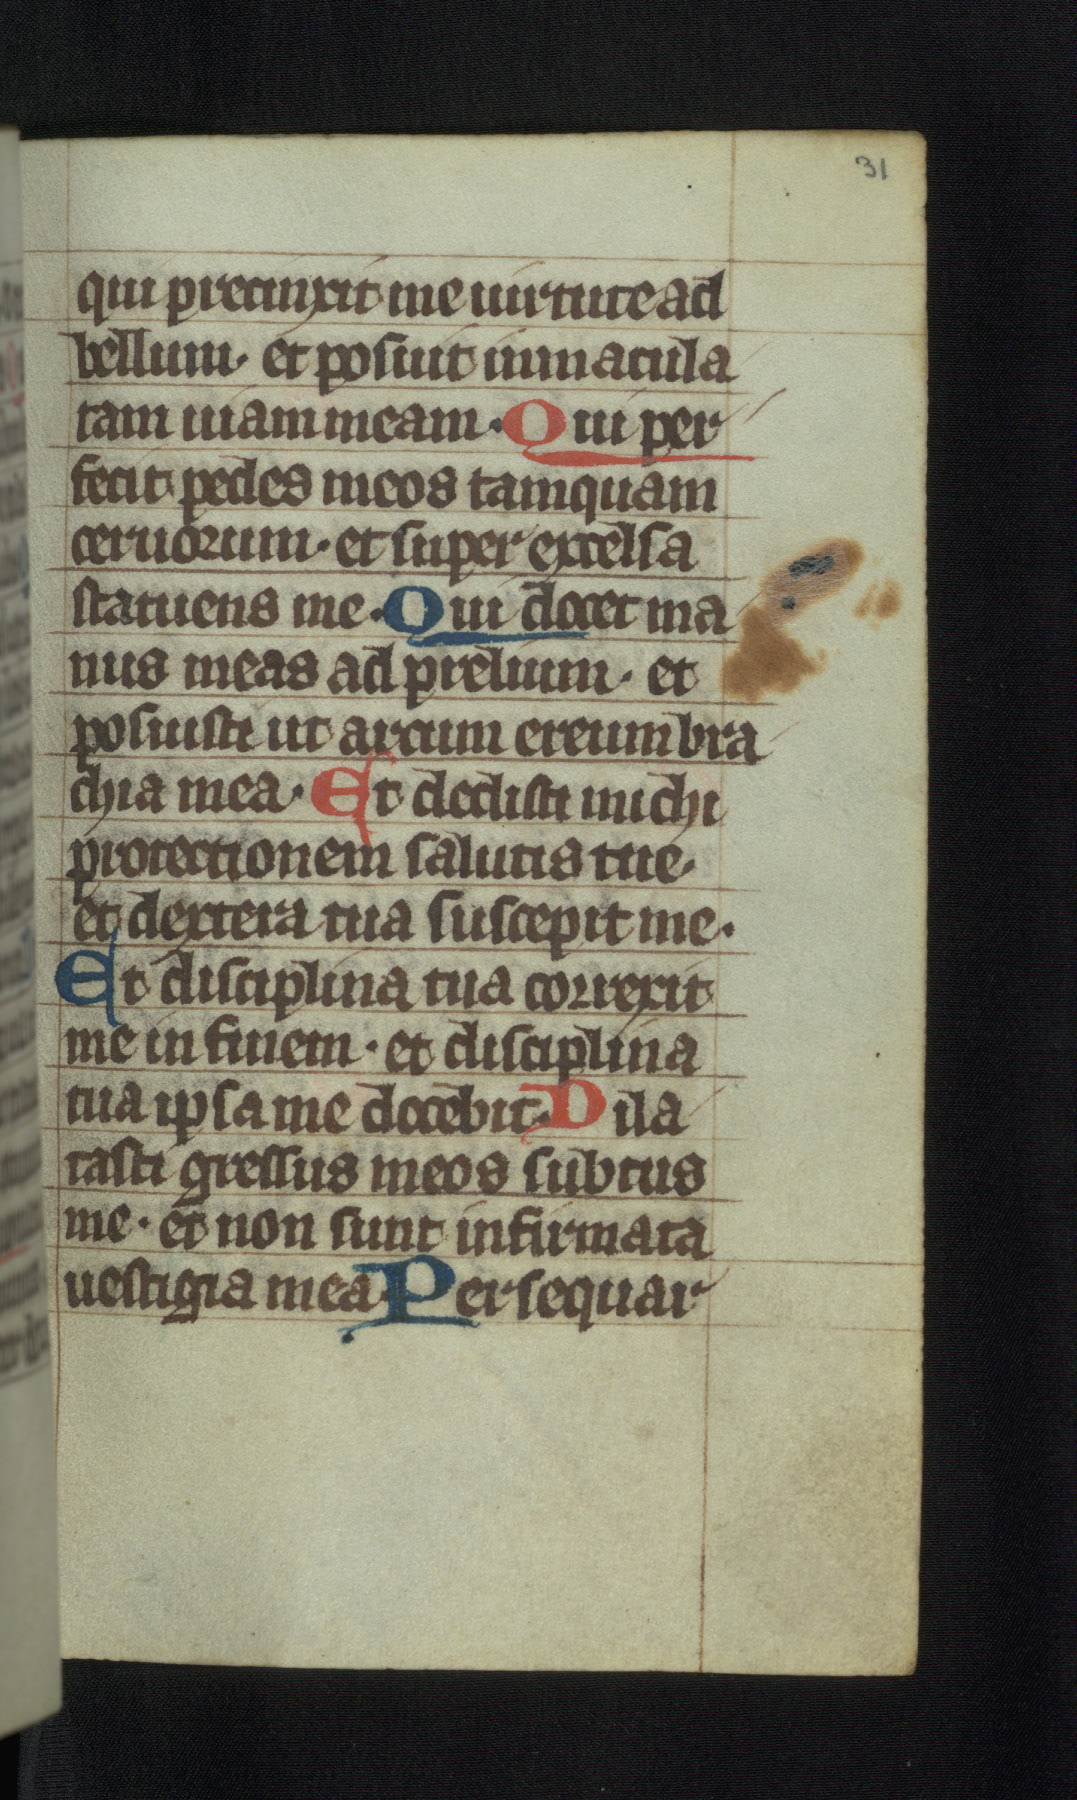 31
qui precinxit me uirtute ad
bellum· et posuit immacula
tam uiam meam· Qui per
fecit pedes meos tamquam
ceruorum· et super excelsa
statuens me· Qui docet ma
nus meas ad prelium· et
posuisti ut arcum ereum bra
chia mea· Et dedisti michi
protectionem salutis tue·
et dextera tua suscepit me·
Et disciplina tua correxit
me in finem· et disciplina
tua ipsa me docebit· Dila
tasti gressus meos subtus
me· et non sunt infirmata
uestigia mea· Persequar